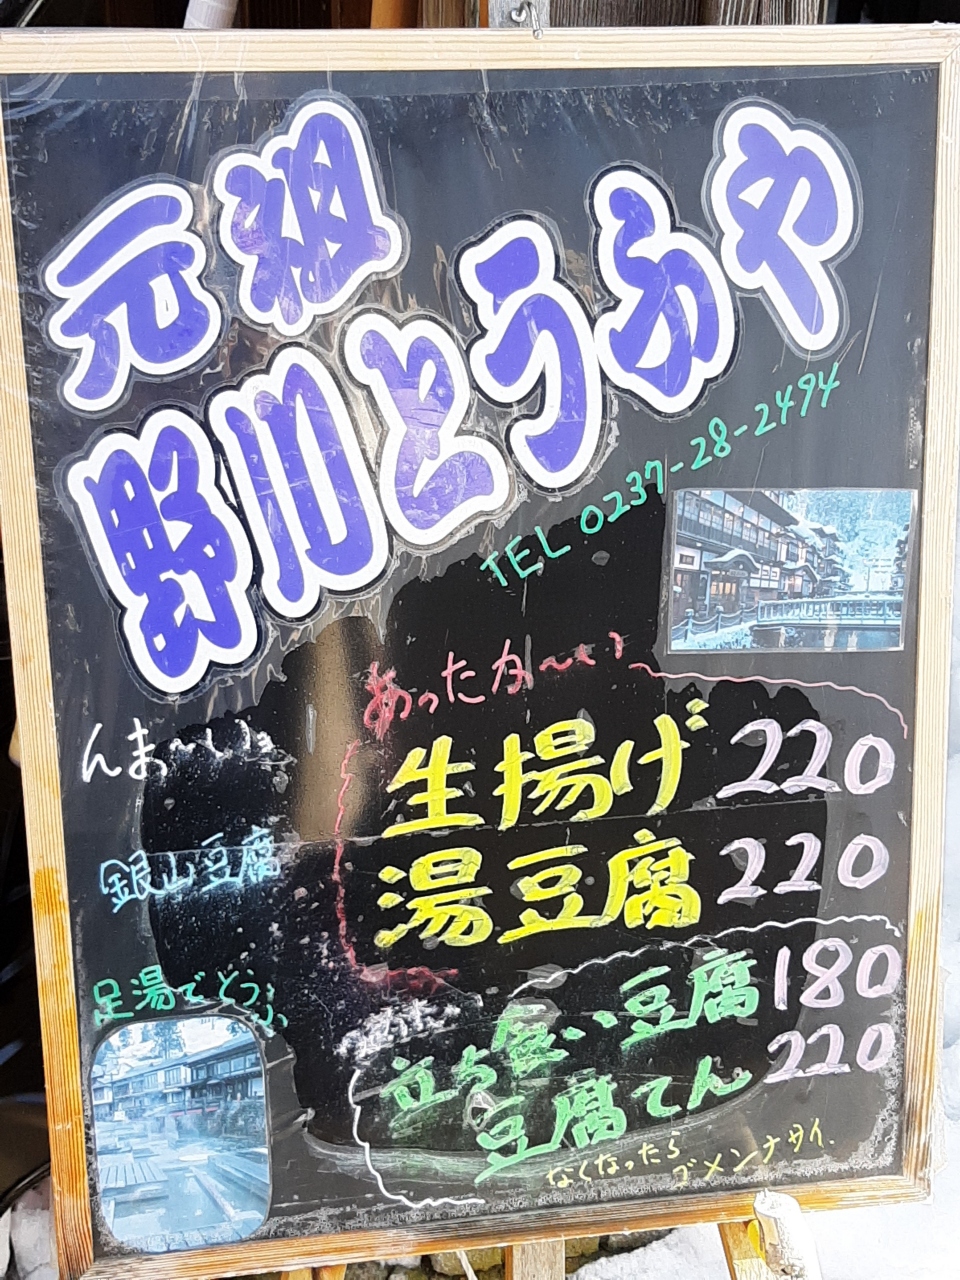 元祖
野川とうふや
TEL 0237-28-2494
あったか〜い
んま〜いょ
生揚げ 220
湯豆腐 220
銀山豆腐
足湯でどうぞ
立ち食い豆腐 180
豆腐てん 220
なくなったら
ゴメンナサイ.